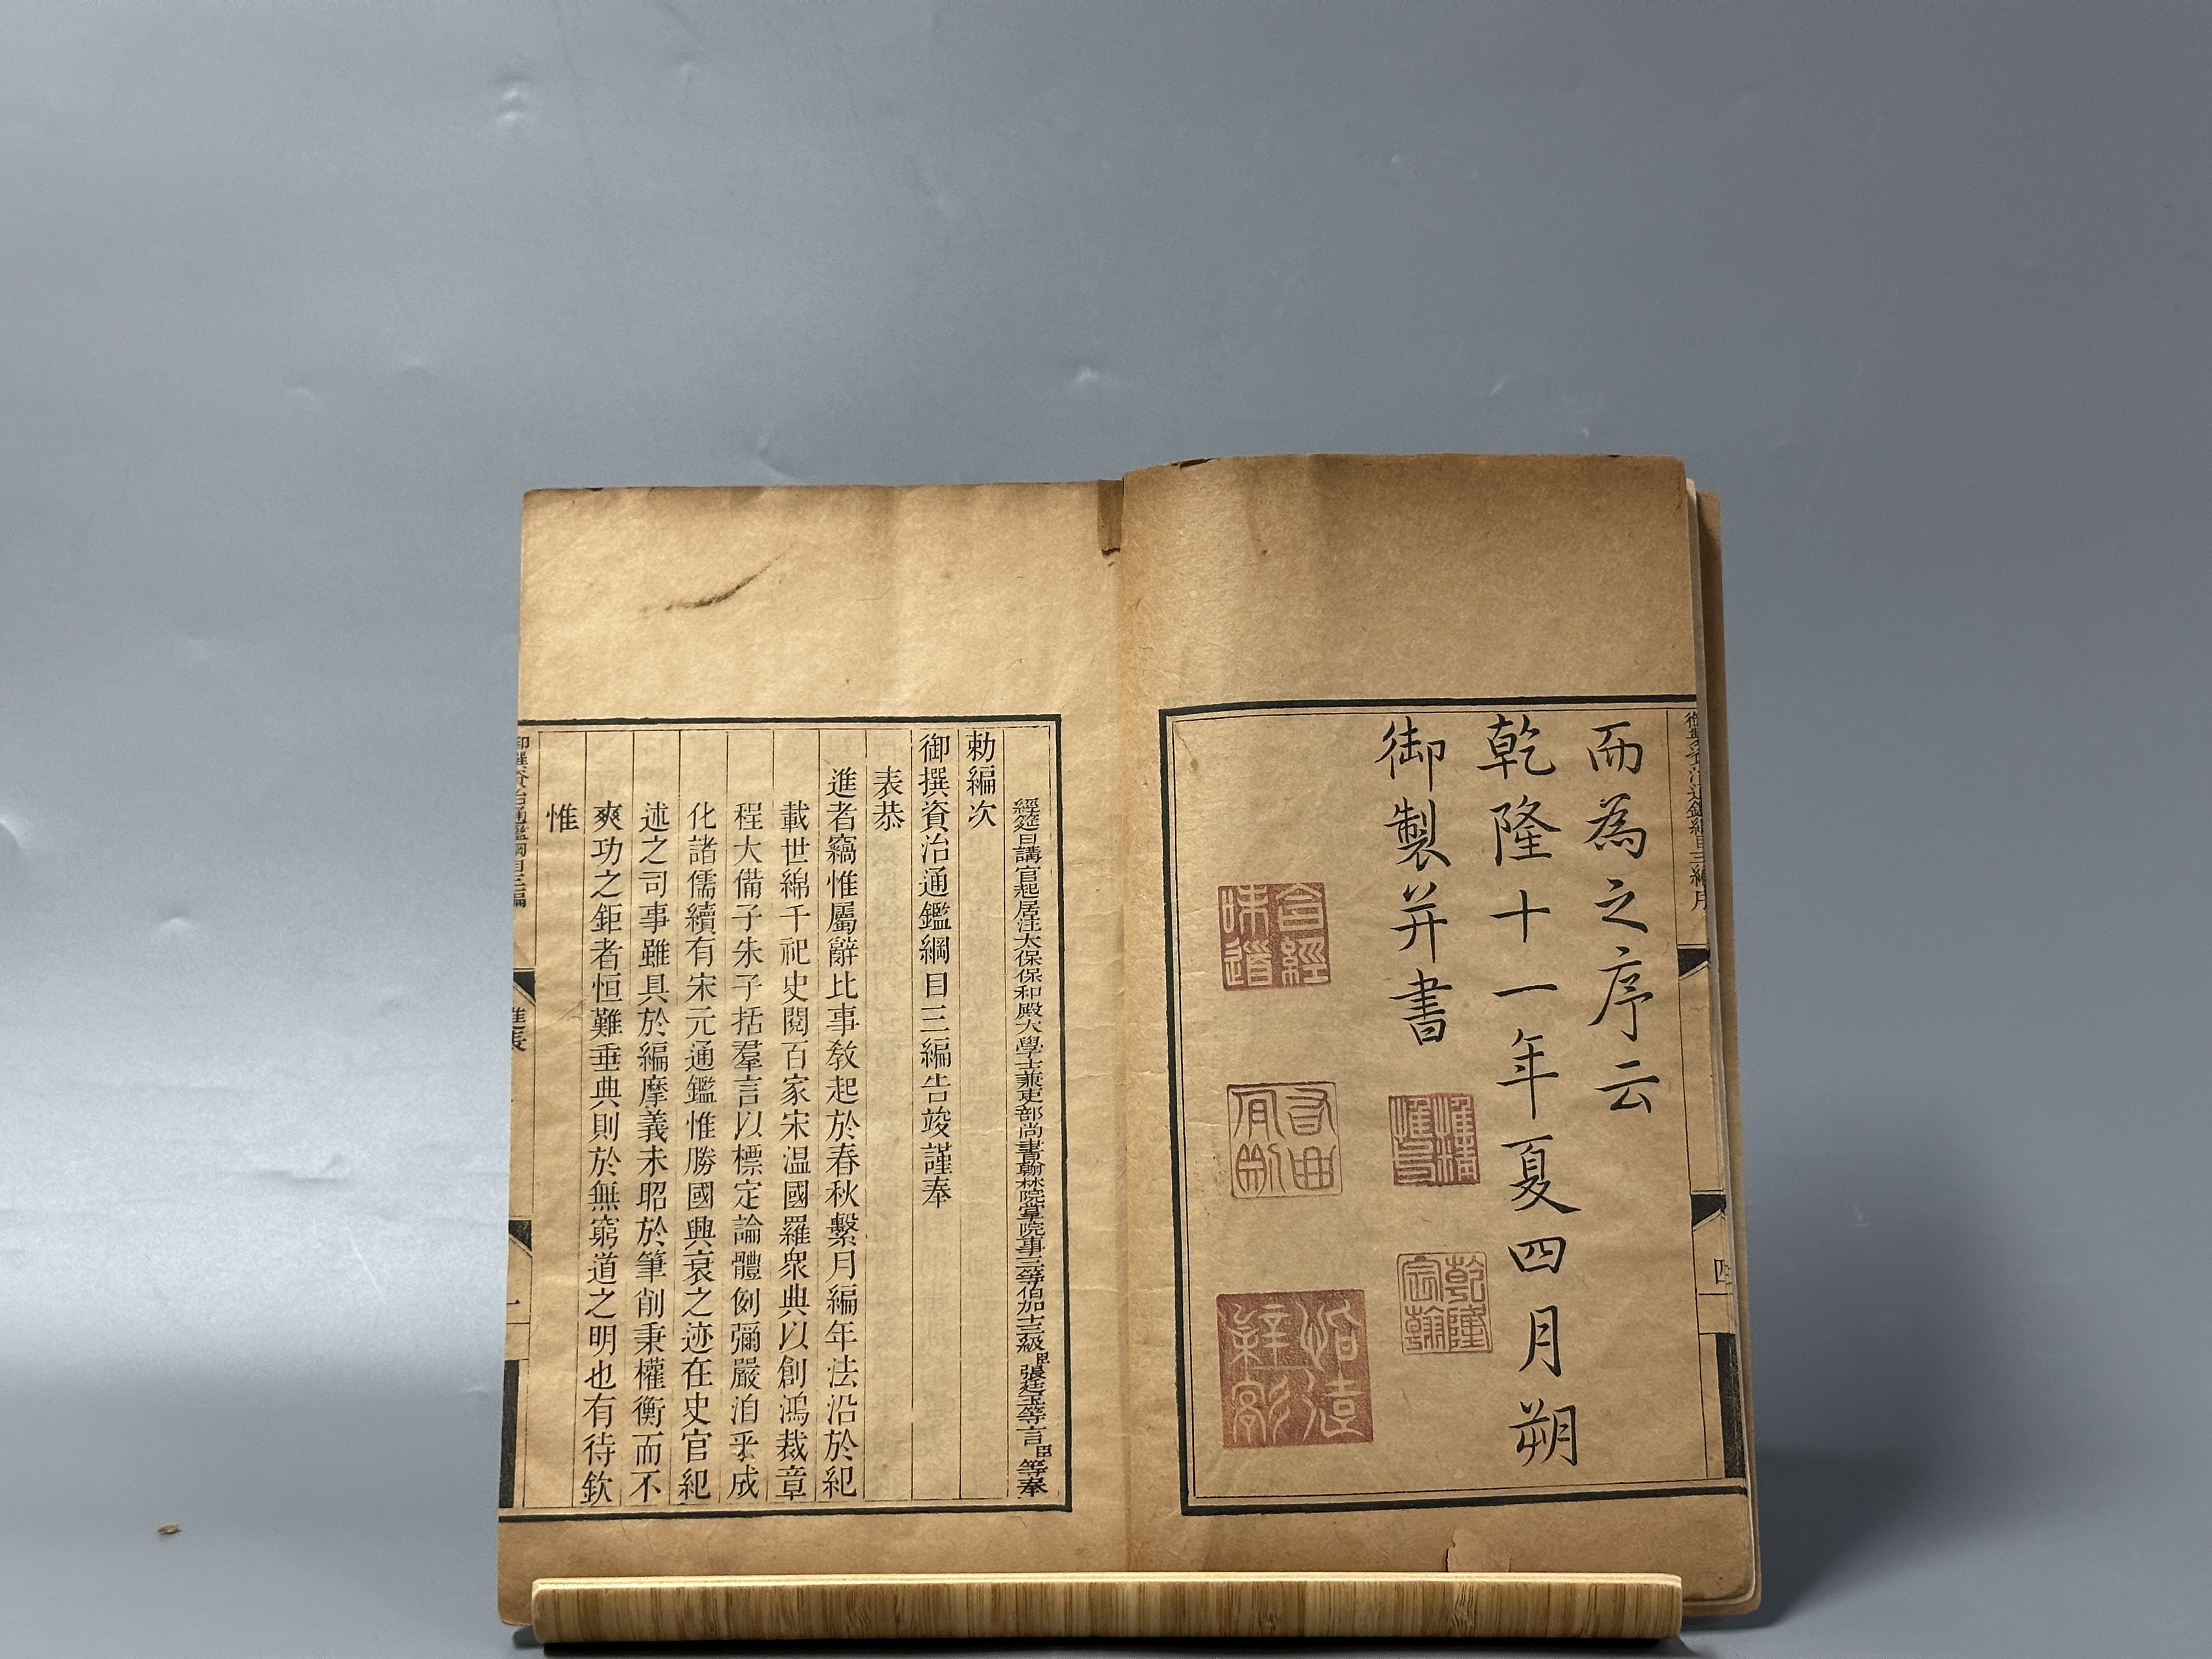 而為之序云
乾隆十一年夏四月朔
御製并書
惟精惟一
乾隆宸翰
含經味道
經筵日講官起居注太保保和殿大學士兼吏部尚書翰林院掌院事三等伯加十三級臣張廷玉等言臣等奉
勅編次
御撰資治通鑑綱目三編告竣謹奉
表恭
進者竊惟屬辭比事教起於春秋繫月編年法沿於紀
載世綿千祀史閱百家宋温國羅衆典以創鴻裁章
程大備子朱子括羣言以標定論體例彌嚴洎乎成
化諸儒續有宋元通鑑惟勝國興衰之迹在史官紀
述之司事雖具於編摩義未昭於筆削秉權衡而不
爽功之鉅者恒難垂典則於無窮道之明也有待欽
惟
御撰資治通鑑綱目三編
進表
一